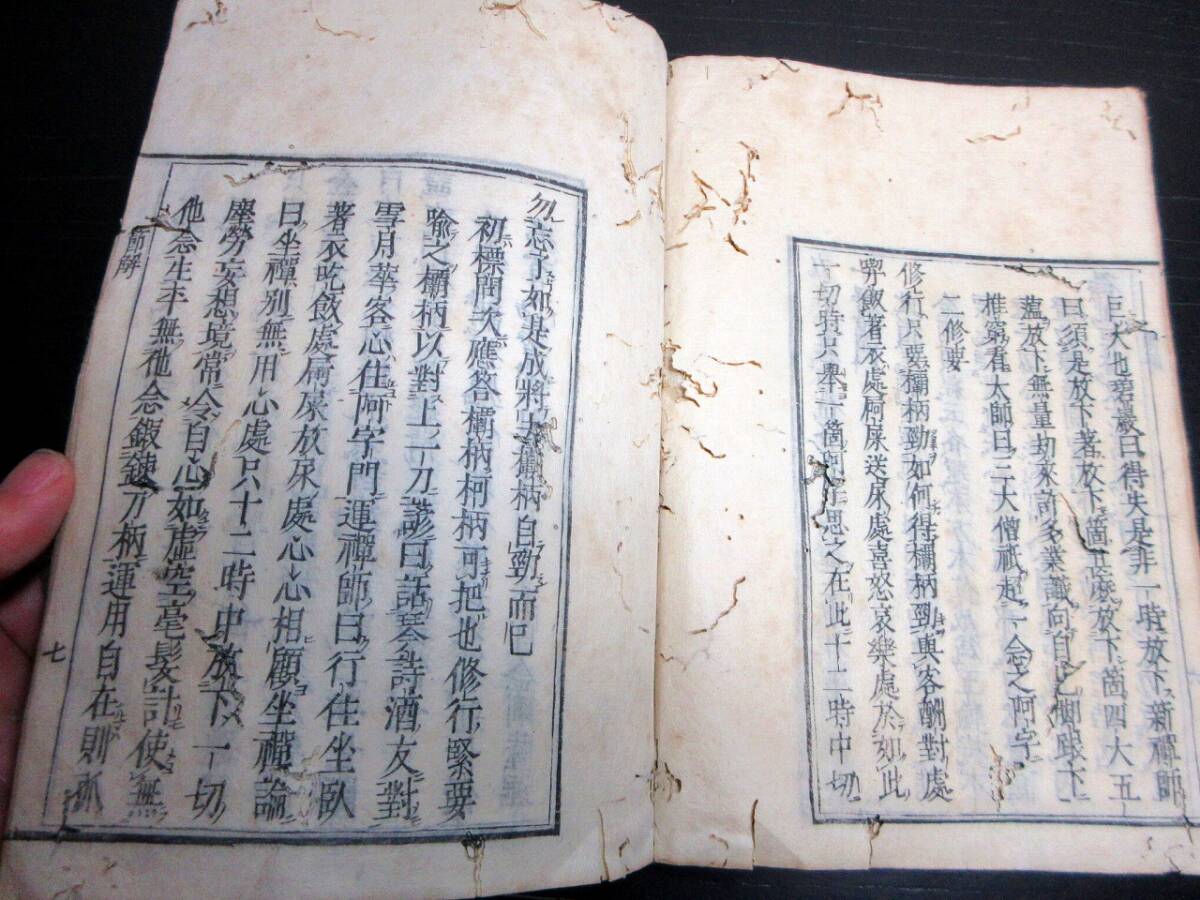 巨大也碧巖曰得失是非一時放下新禪師
曰須是放下著放下箇甚麽放下箇四大五
蘊放下無量劫來許多業識向自己脚跟下
推窮看大師曰三大僧祇超一念之阿字
二修要
修行只要欛柄勁如何得欛柄勁與客酬對處
喫飯著衣處柯屎送尿處喜怒哀樂處於如此
一切時只舉一箇阿字思之在此十二時中切
勿忘了如是成將去欛柄自勁而已
初標問次應答欛柄柯柄可把也修行緊要
喩之欛柄以對上一刀諺曰話琴詩酒友對
雪月華客心住阿字門運禪師曰行住坐臥
著衣吃飯處屙屎放尿處心心相顧坐禪論
曰坐禪別無用心處只十二時中放下一切
塵勞妄想境常令自心如虛空毫髮計使無
他念生平無他念鍛鍊刀柄運用自在則
節解
七